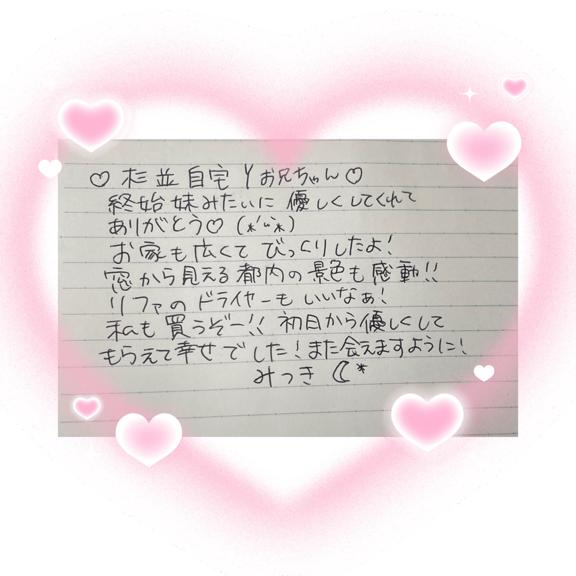 ♡ 杉並自宅 Yお兄ちゃん♡
終始妹みたいに優しくしてくれて
ありがとう♡(*´ω`*)
お家も広くてびっくりしたよ!
窓から見える都内の景色も感動!!
リファのドライヤーもいいなぁ!
私も買うぞー!! 初日から優しくして
もらえて幸せでした!また会えますように!
みつき ☾*